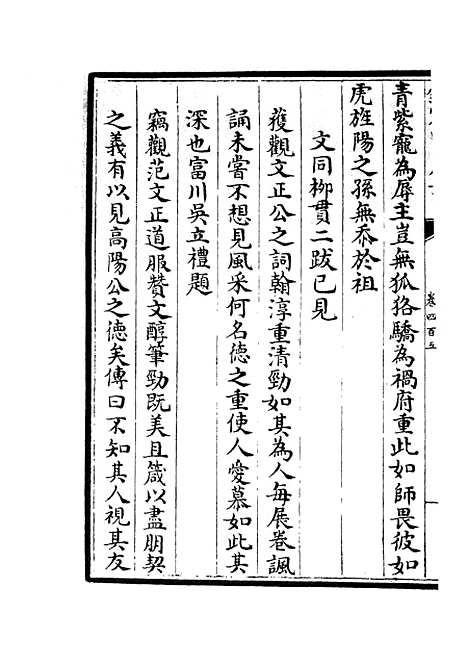 青紫寵為辱主豈無狐狢驕為禍府重此如師畏彼如
虎旌陽之孫無忝於祖
文同柳貫二跋已見
獲觀文正公之詞翰淳重清勁如其為人每展卷諷
誦未嘗不想見風采何名德之重使人愛慕如此其
深也富川吳立禮題
竊觀范文正道服贊文醇筆勁既美且箴以盡朋契
之義有以見高陽公之德矣傳曰不知其人視其友
卷四百五